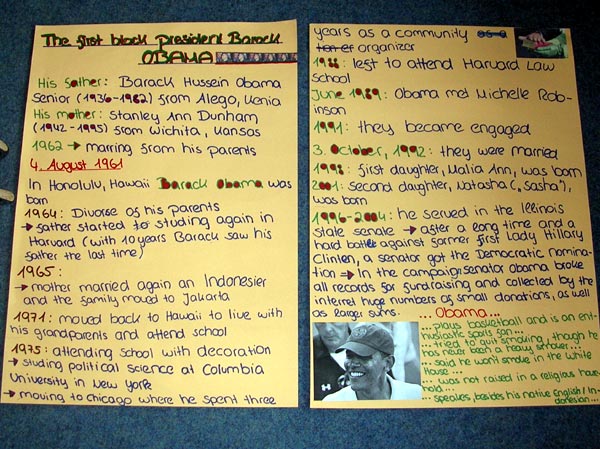 The first black president Barack
OBAMA
His father: Barack Hussein Obama
Senior (1936-1982) from Alego, Kenia
His mother: Stanley Ann Dunham
(1942-1995) from Wichita, Kansas
1962 → marring from his parents
4. August 1961
In Honolulu, Hawaii Barack Obama was
born
1964: Divorse of his parents
→ father started to studing again in
Harvard (with 10 years Barack saw his
father the last time)
1965:
→ mother married again an Indonesier
and the family moved to Jakarta
1971: moved back to Hawaii to live with
his grandparents and attend school
1975: attending school with decoration
→ studing political science at Columbia
University in New York
→ moving to Chicago where he spent three
years as a community
organizer
1988: left to attend Harvard Law
School
June 1989: Obama met Michelle Rob-
inson
1991: they became engaged
3. October, 1992: they were married
1998: first daughter, Malia Ann, was born
2001: second daughter, Natasha („Sasha"),
was born
1996-2004: he served in the Illinois
state senate → after a long time and a
hard battle against former first Lady Hillary
Clinton, a senator got the Democratic nomina-
tion → In the campaign senator Obama broke
all records for fundraising and collected by the
internet huge numbers of small donations, as well
as larger sums.
... Obama...
...plays basketball and is an ent-
husiastic sports fan...
...tried to quit smoking, though he
has never been a heavy smoker...
...said he won't smoke in the White
House...
... was not raised in a religious house-
hold...
... speakes, besides his native English, In-
donesian...